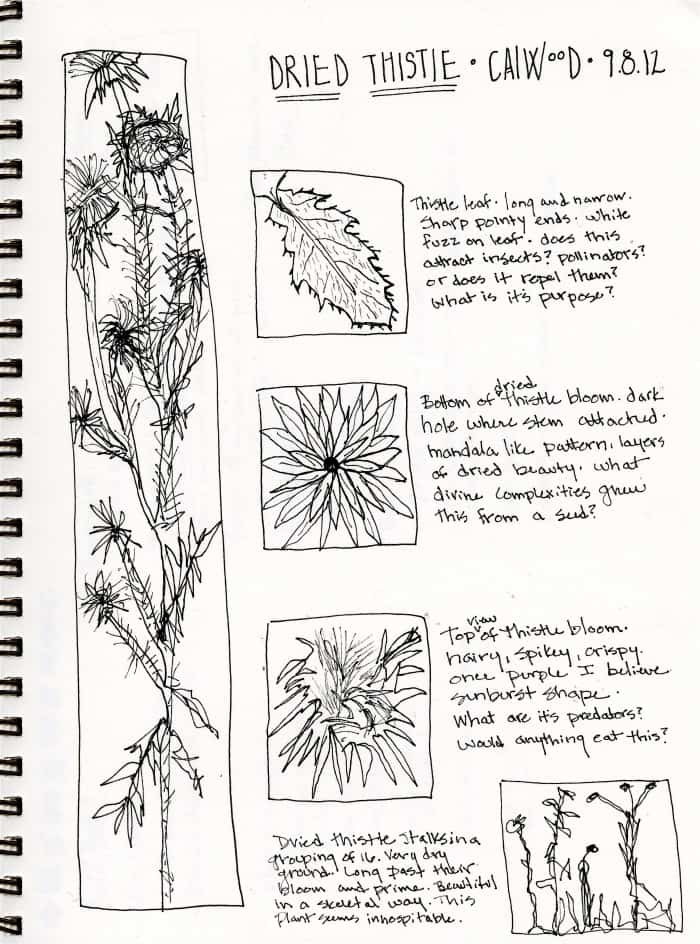 DRIED THISTLE · CALWOOD · 9.8.12
Thistle leaf. long and narrow.
Sharp pointy ends. White
fuzz on leaf. does this
attract insects? pollinators?
or does it repel them?
What is it's purpose?
Bottom of dried thistle bloom. dark
hole where stem attached.
mandala like pattern, layers
of dried beauty. what
divine complexities grew
this from a seed?
Top view of thistle bloom.
hairy, spikey, crispy.
once purple I believe
sunburst shape.
What are it's predators?
Would anything eat this?
Dried thistle stalks in a
grouping of 16. Very dry
ground. Long past their
bloom and prime. Beautiful
in a skeletal way. This
Plant seems inhospitable.